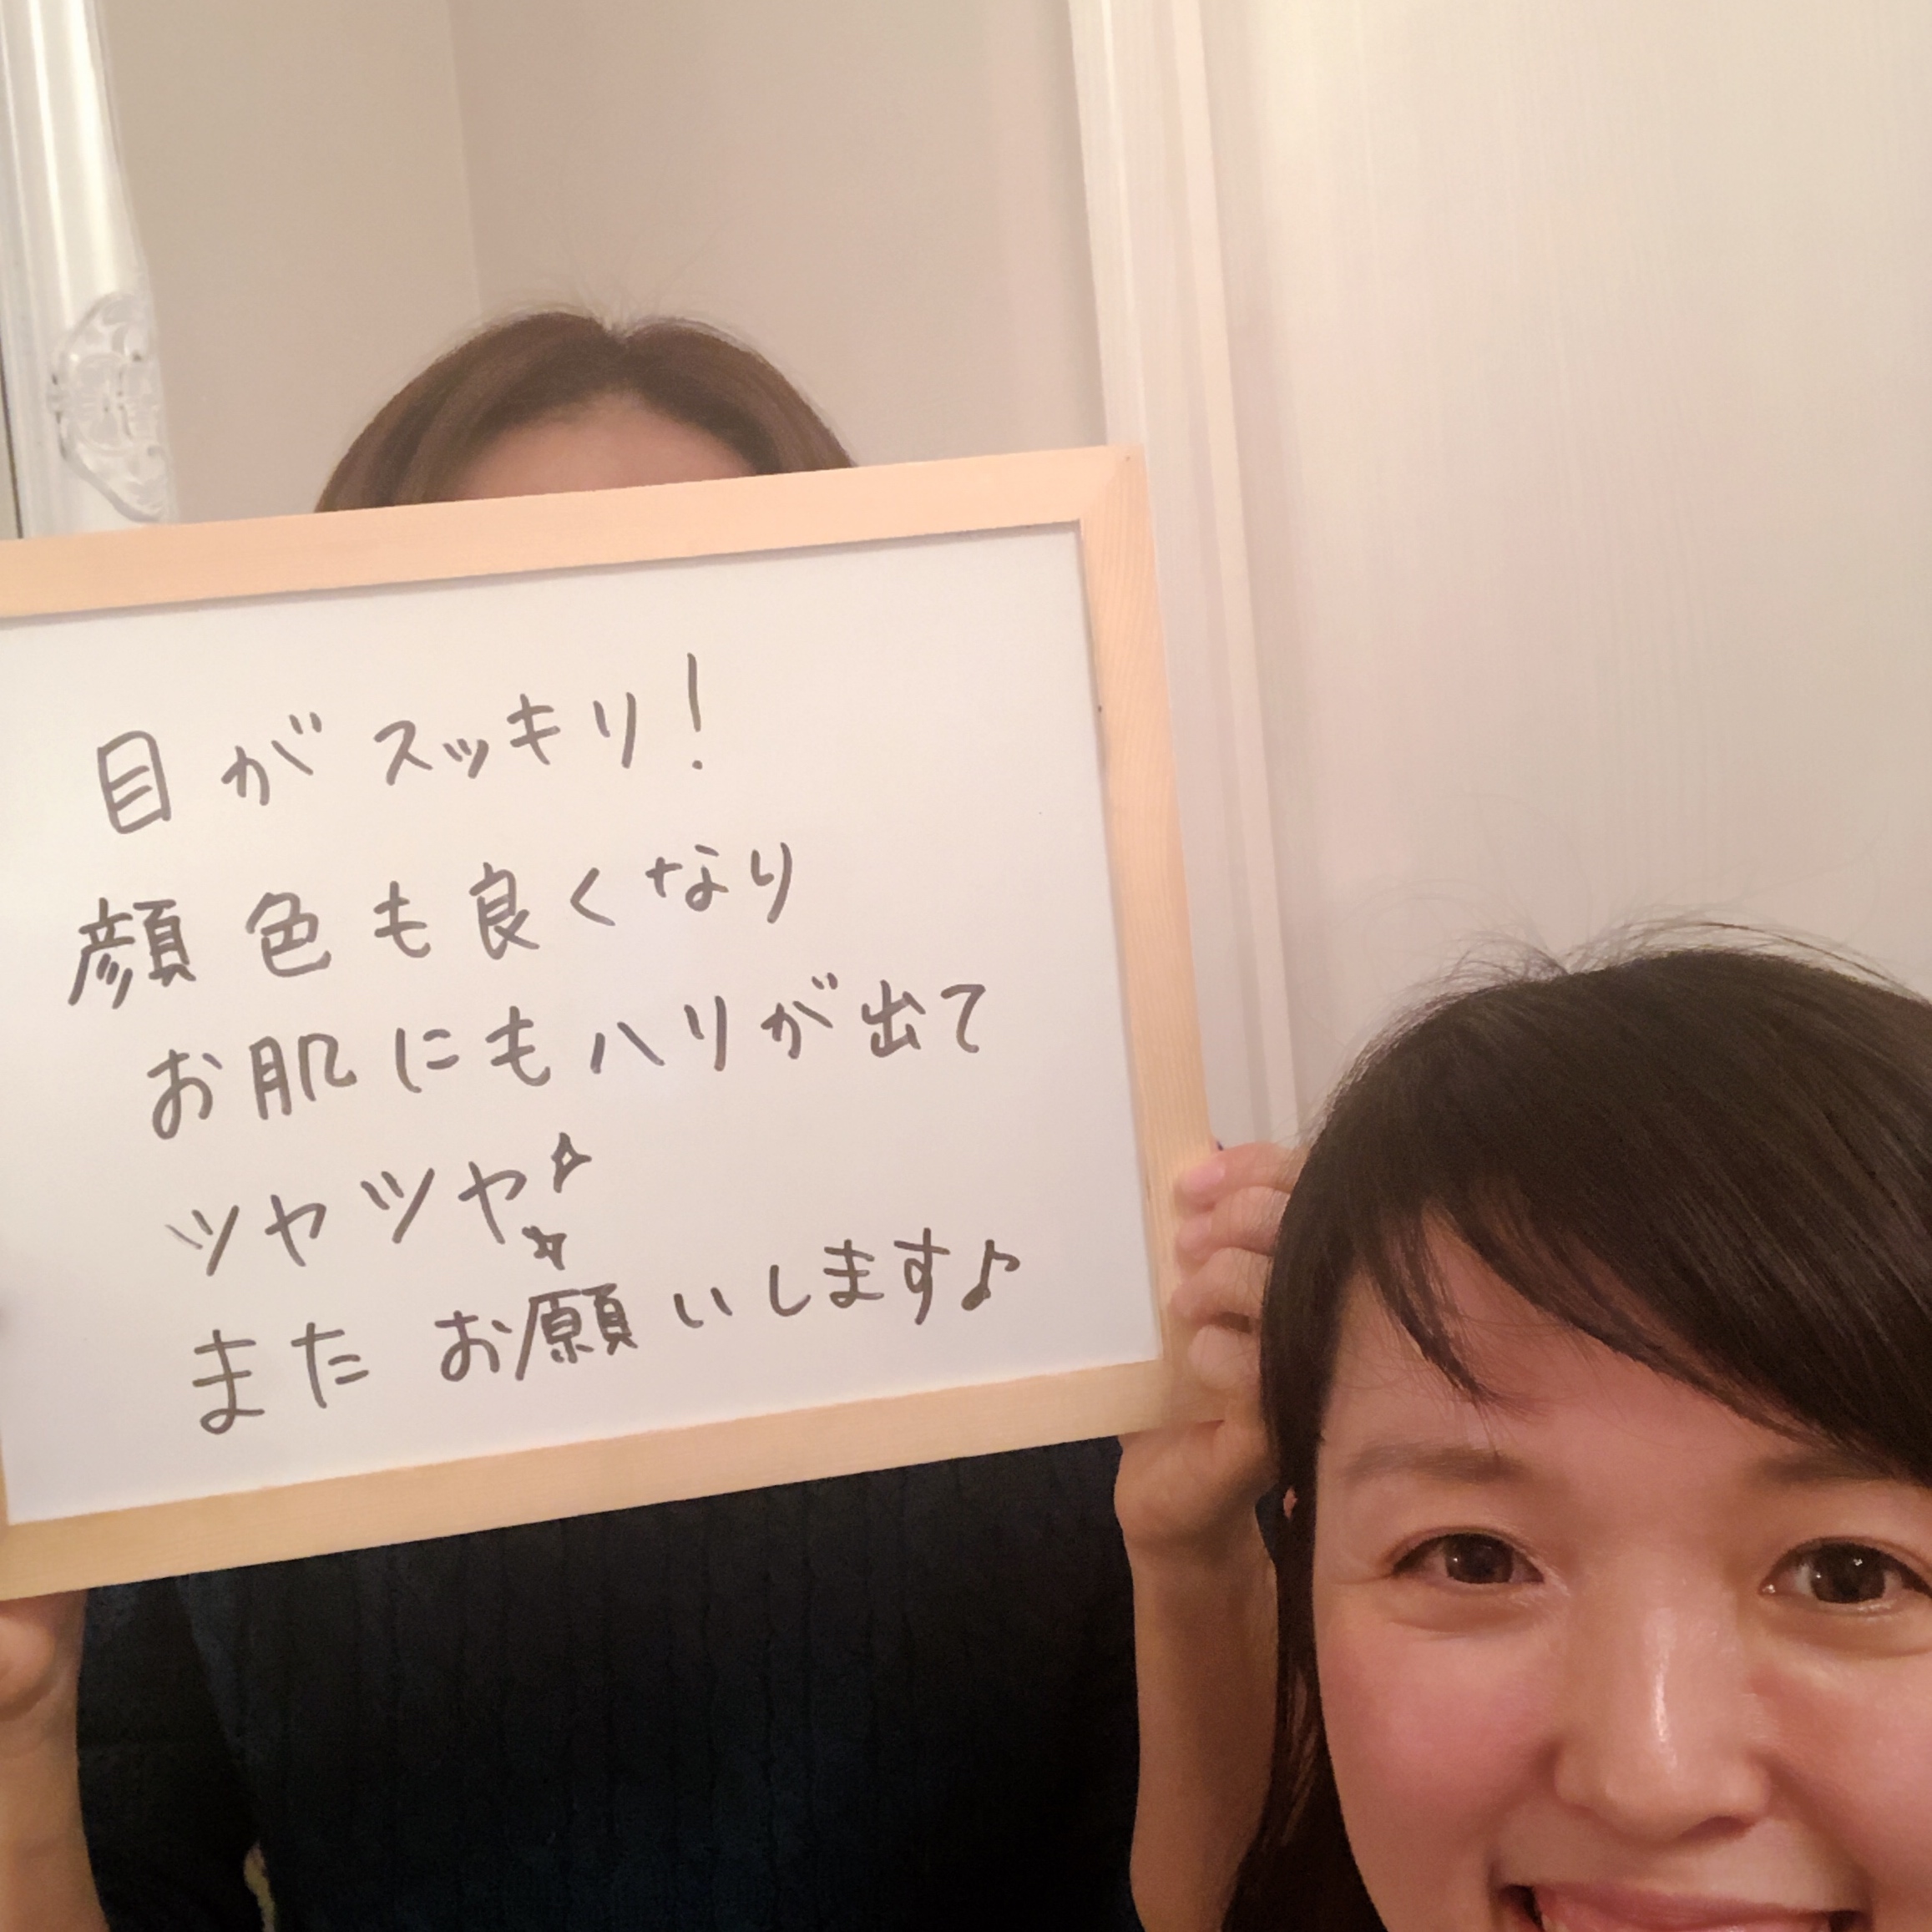 目がスッキリ!
顔色も良くなり
お肌にもハリが出て
ツヤツヤ☆☆
またお願いします♪